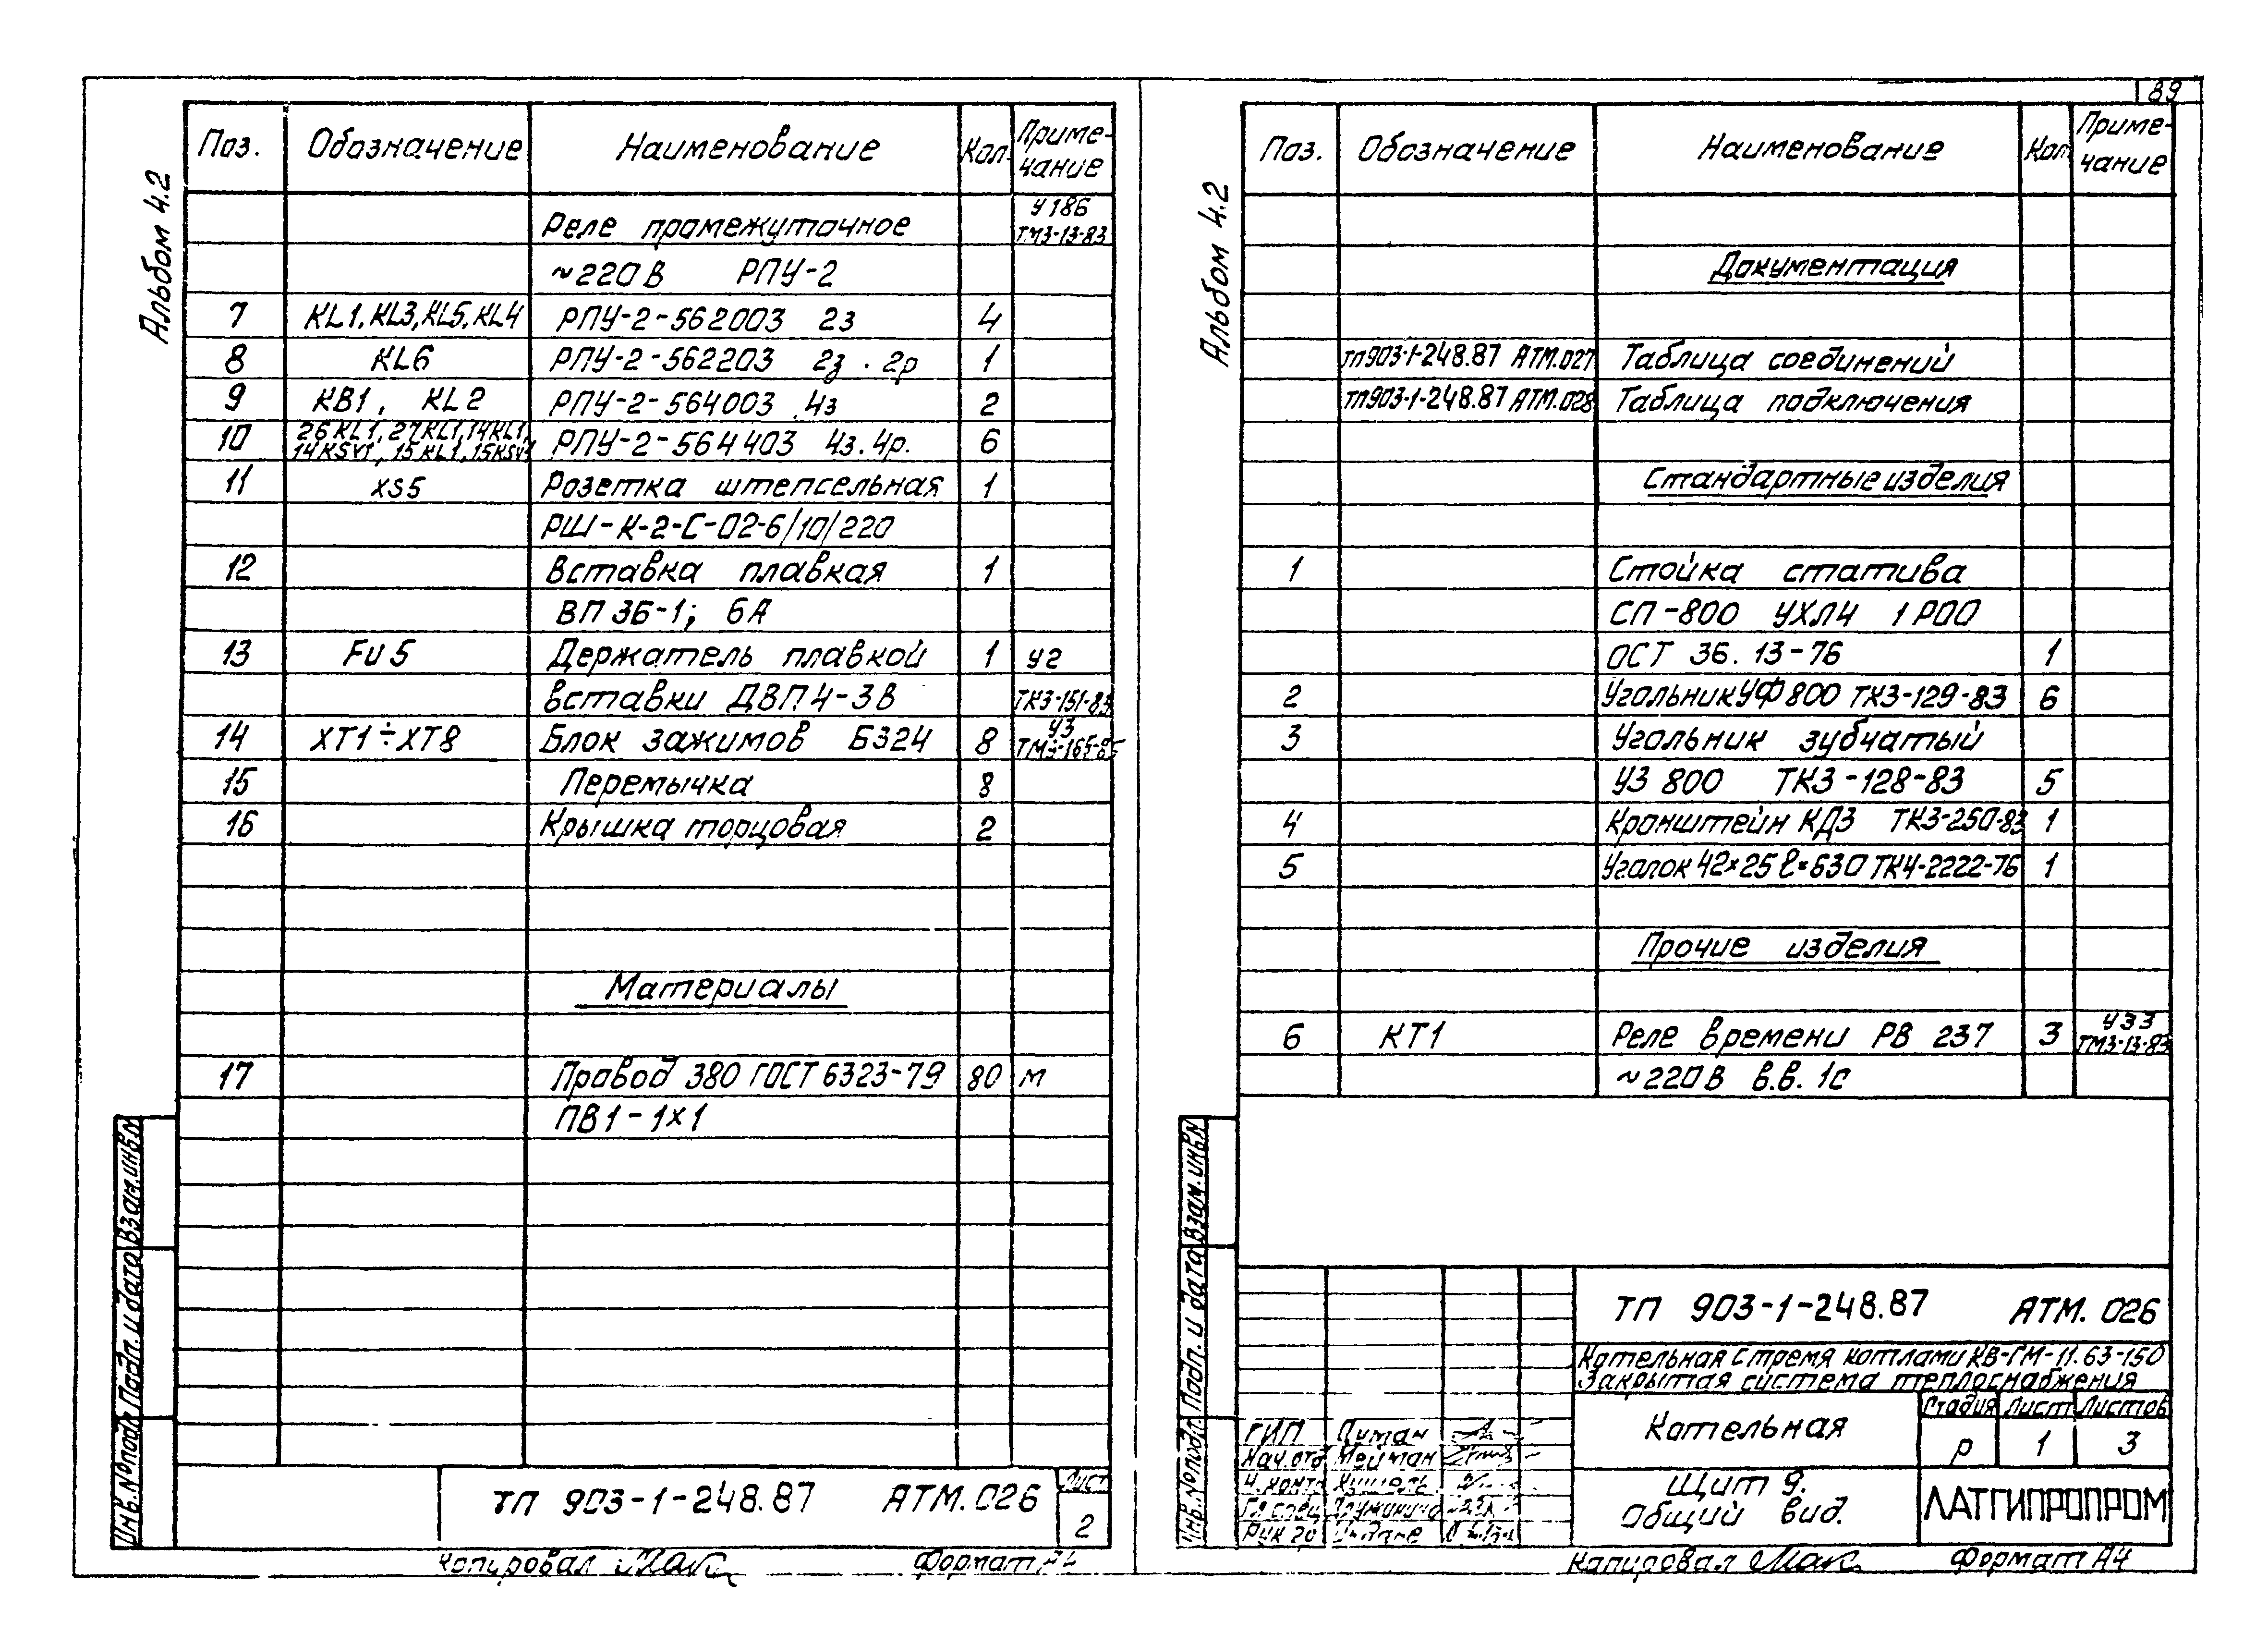 89
Альбом 4.2
Поз. Обозначение Наименование Кол. Приме-
чание
Реле промежуточное У186
ТМ3-13-83
~220В РПУ-2
7 KL1, KL3, KL5, KL4 РПУ-2-562003 2з 4
8 KL6 РПУ-2-562203 2з . 2р 1
9 КВ1, KL2 РПУ-2-564003 4з 2
10 26KL1, 27KL1, 14KL1,
14KSV1, 15KL1, 15KSV1 РПУ-2-564403 4з. 4р. 6
11 XS5 Розетка штепсельная 1
РШ-К-2-С-02-6/10/220
12 Вставка плавкая 1
ВП 3Б-1; 6А
13 FU5 Держатель плавкой 1 У2
вставки ДВП4-3В ТК3-151-83
14 XT1÷XT8 Блок зажимов Б324 8 У3
ТМ3-165-85
15 Перемычка 8
16 Крышка торцовая 2
Материалы
17 Провод 380 ГОСТ 6323-79 80 м
ПВ1-1х1
Взам.инв.№
Подп. и дата
Инв.№подл.
ТП 903-1-248.87 АТМ.026 Лист
2
Копировал Формат А4
Альбом 4.2
Поз. Обозначение Наименование Кол Приме-
чание
Документация
ТП903-1-248.87 АТМ.027 Таблица соединений
ТП903-1-248.87 АТМ.028 Таблица подключения
Стандартные изделия
1 Стойка статива
СП-800 УХЛ4 1Р00
ОСТ 36.13-76 1
2 Угольник УФ800 ТК3-129-83 6
3 Угольник зубчатый
УЗ 800 ТК3-128-83 5
4 Кронштейн КД3 ТК3-250-83 1
5 Уголок 42х25 ℓ=630 ТК4-2222-76 1
Прочие изделия
6 КТ1 Реле времени РВ 237 3 У33
ТМ3-13-83
~220В в.в. 1с
Взам.инв.№
Подп. и дата
Инв.№подл.
ТП 903-1-248.87 АТМ.026
Котельная с тремя котлами КВ-ГМ-11.63-150
Закрытая система теплоснабжения
Котельная
Стадия Лист Листов
Р 1 3
ГИП Питан
Нач.отд Мейман
Н.контр
Гл.спец
Рук гр
Щит 9.
Общий вид.
ЛАТГИПРОПРОМ
Копировал Формат А4